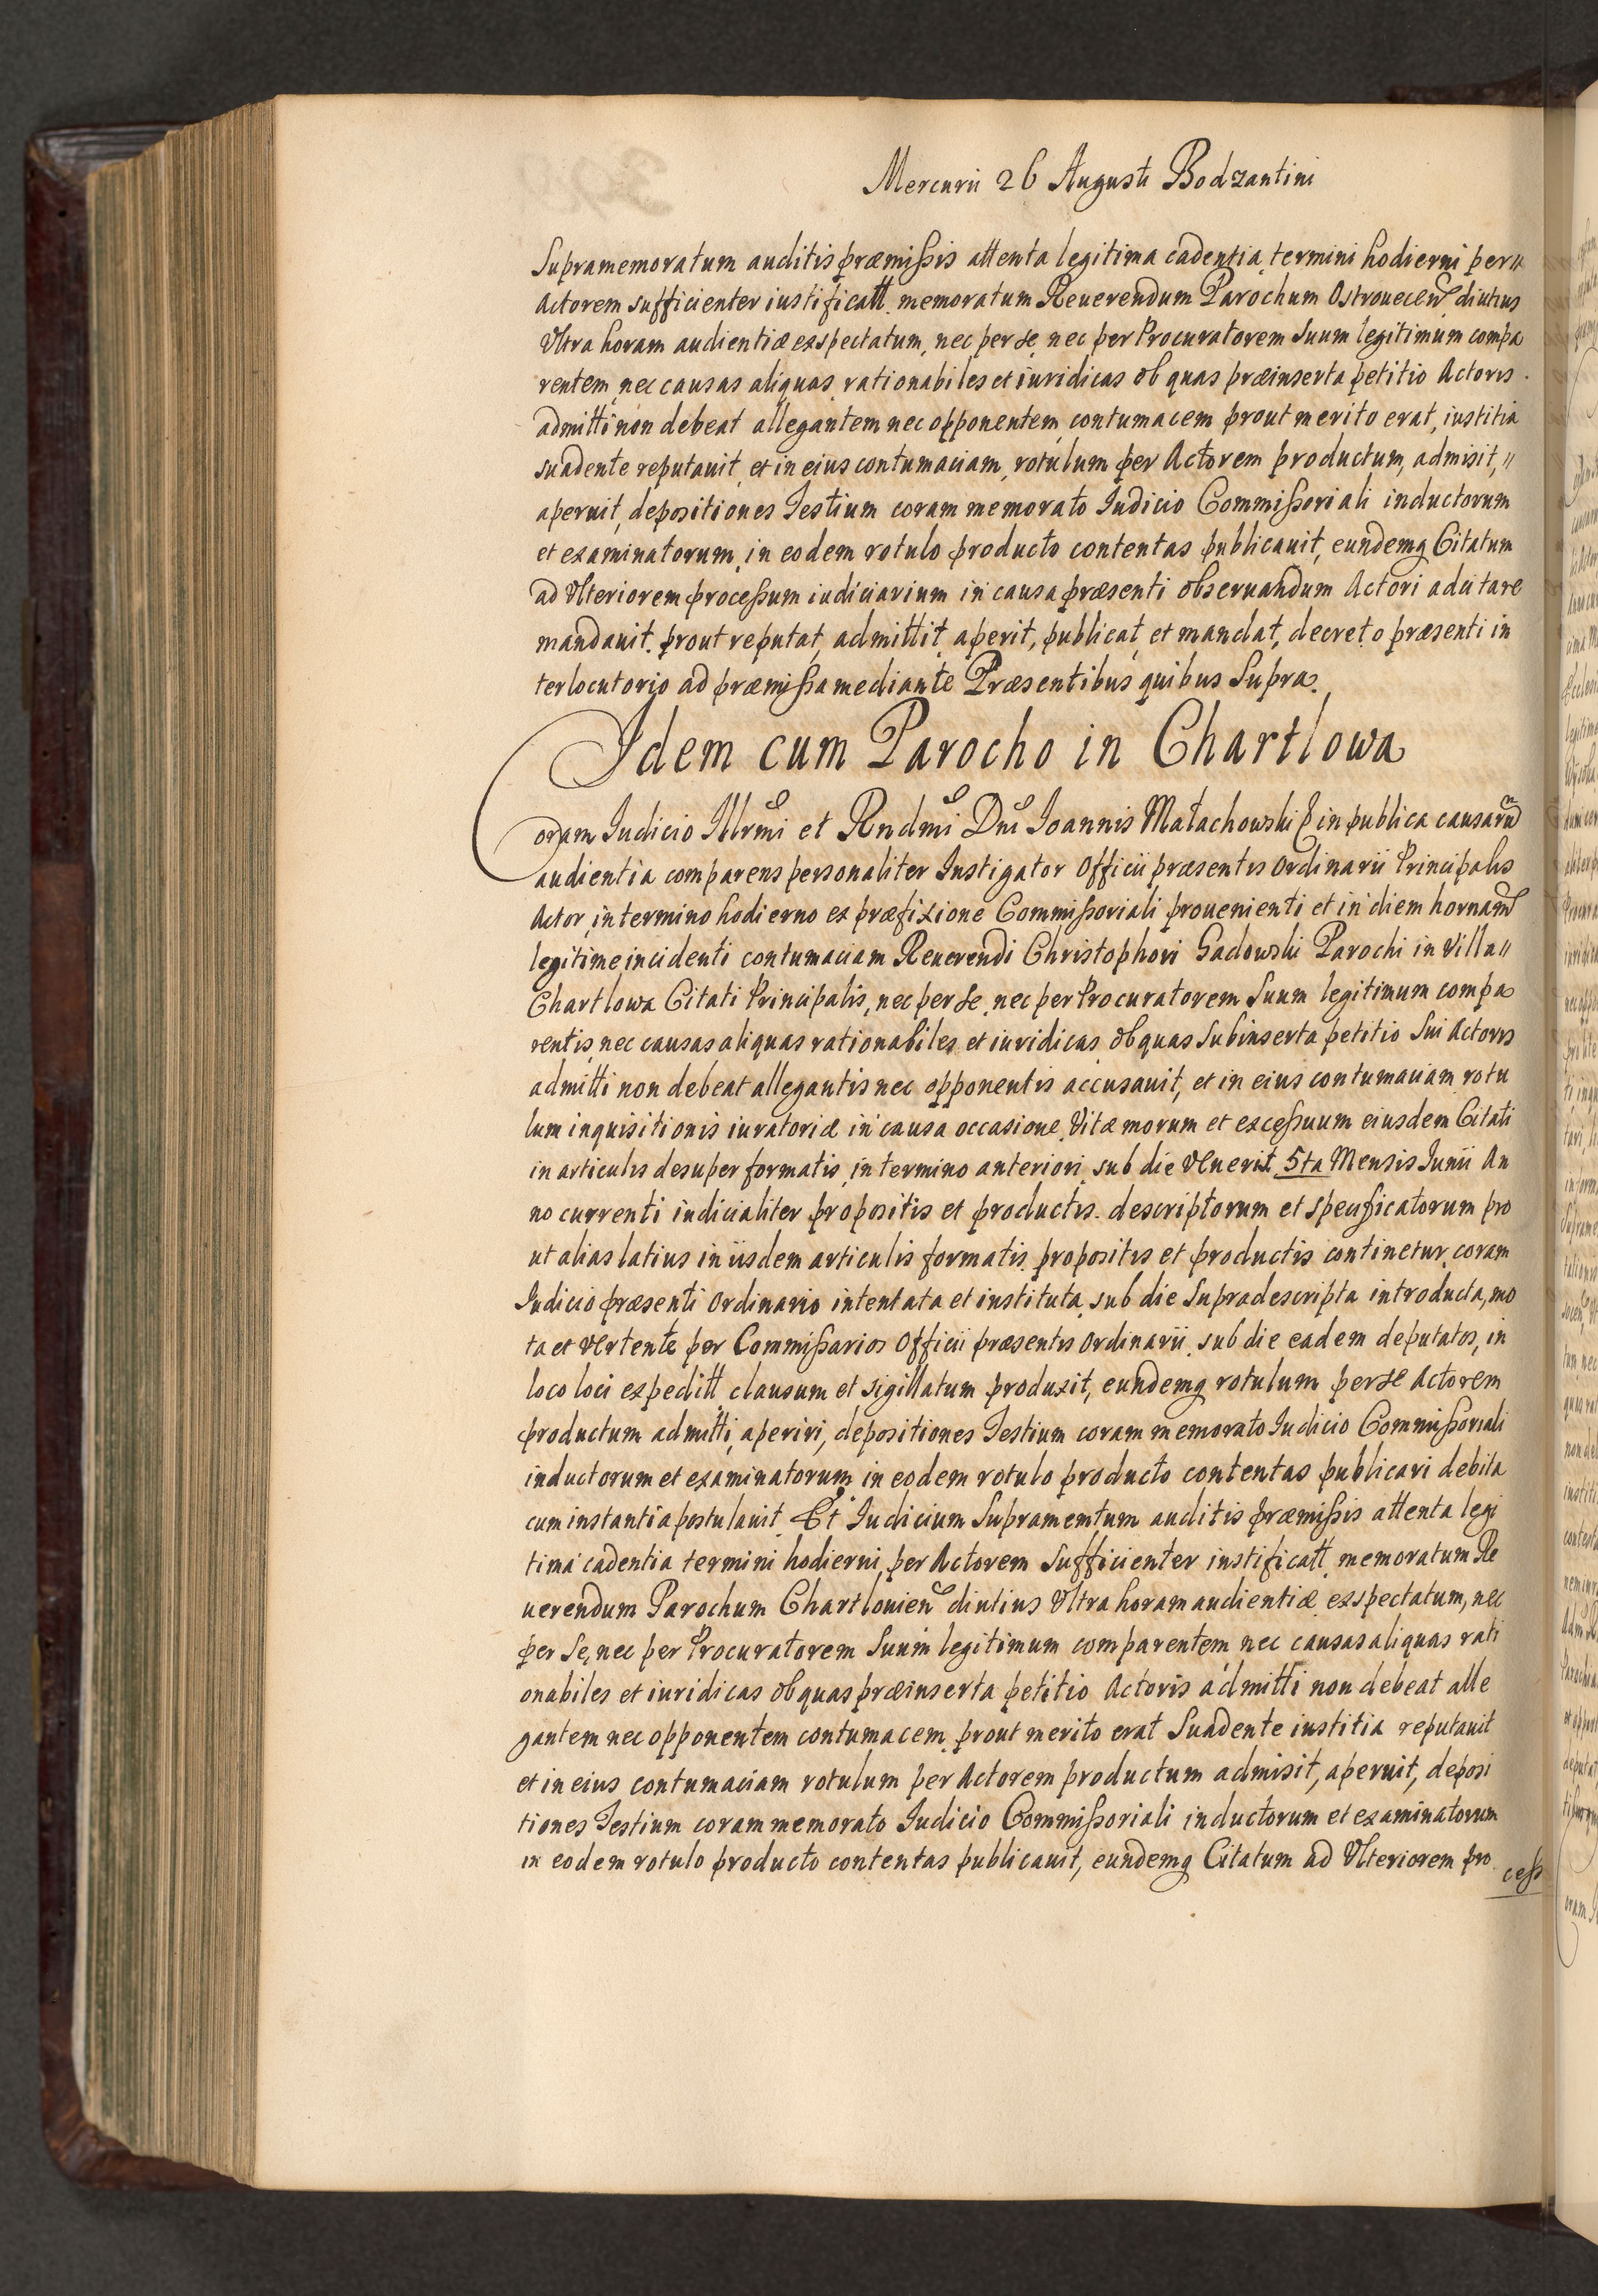 Mercurii 26 Augusti Bodzantini
Supramemoratum auditis præmissis attenta legitima cadentia termini hodierni per〃
Actorem sufficienter iustificatt. memoratum Reuerendum Parochum Ostrouecen diutius
Vltra horam audientiæ exspectatum, nec per se, nec per Procuratorem Suum legitimum compa
rentem, nec causas aliquas rationabiles et iuridicas ob quas præinserta petitio Actoris.
admitti non debeat allegantem nec opponentem, contumacem prout merito erat, iustitia
suadente reputauit, et in eius contumaciam, rotulum per Actorem productum, admisit,〃
aperuit, depositiones Testium coram memorato Iudicio Commissoriali inductorum
et examinatorum, in eodem rotulo producto contentas publicauit, eundemq Citatum
ad Vlteriorem processum iudiciarium in causa præsenti observandum Actori adcitare
mandauit. prout reputat, admittit, aperit, publicat, et mandat, decreto præsenti in
terlocutorio ad præmissa mediante Præsentibus quibus Supra.
Idem cum Parocho in Chartlowa
Coram Iudicio Illrmi et Rndmi Dni Ioannis Małachowski P in publica causaru
audientia comparens personaliter Instigator Officii præsentis Ordinarii Principalis
Actor, in termino hodierno ex præfixione Commissoriali prouenienti et in diem hornam
legitime incidenti contumaciam Reuerendi Christophori Sadowski Parochi in Villa〃
Chartlowa Citati Principalis, nec per se, nec per Procuratorem Suum legitimum compa
rentis, nec causas aliquas rationabiles et iuridicas ob quas Subinserta petitio Sui Actoris
admitti non debeat allegantis nec opponentis accusauit, et in eius contumaciam rotu
lum inquisitionis iuratoriæ in causa occasione Vitæ morum et excessuum eiusdem Citati
in articulis desuper formatis, in termino anteriori sub die Veneris 5ta Mensis Iunii An
no currenti iudicialiter propositis et productis. descriptorum et specificatorum pro
ut alias latius in iisdem articulis formatis propositis et productis continetur, coram
Iudicio præsenti Ordinario intentata et instituta, sub die Supradescripta introducta, mo
ta et Vertente per Commissarios Officii præsentis Ordinarii, sub die eadem deputatos, in
loco loci expeditt. clausum et sigillatum produxit, eundemq rotulum per se Actorem
productum admitti, aperiri, depositiones Testium coram memorato Iudicio Commissoriali
inductorum et examinatorum, in eodem rotulo producto contentas publicari debita
cum instantia postulauit. Et Iudicium Supramemtum auditis præmissis attenta legi
tima cadentia termini hodierni, per Actorem Sufficienter iustificatt. memoratum Re
uerendum Parochum Chartlouien diutius Vltra horam audientiæ exspectatum, nec
per Se, nec per Procuratorem Suum legitimum comparentem nec causas aliquas rati
onabiles et iuridicas ob quas præinserta petitio Actoris admitti non debeat alle
gantem nec opponentem contumacem prout merito erat Suadente iustitia reputauit
et in eius contumaciam rotulum per Actorem productum admisit, aperuit, deposi
tiones Testium coram memorato Iudicio Commissoriali inductorum et examinatorum
in eodem rotulo producto contentas publicauit, eundemq Citatum ad Vlteriorem pro
cess